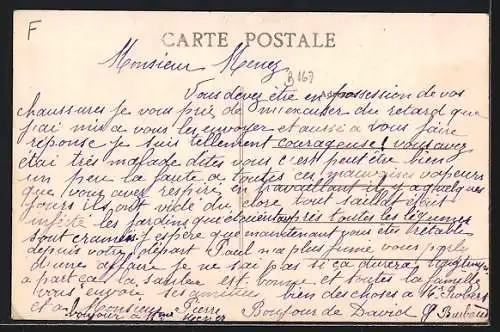 F
CARTE POSTALE
B 167
Monsieur Menez
Vous devez être en possession de vos
chaussures je vous prie de m'excuser du retard que
j'ai mis a vous les envoyer et aussi a vous faire
réponse je suis tellement courageuse! vous avez
étai très malade dites vous c'est peut être bien
un peu la faute a toutes ces mauvaises vapeurs
que vous avez respiré en travaillant il y a quelques
jours ils ont vidé du clore tout saillet était
infecté les jardins que étaient après toutes les légumes
sont cramées j'espère que maintenant vous êtes rétablie
depuis votre départ Paul n'a plus fumé vous parle
d'une affaire je ne sai pas si ça durera
a part ça la santer est bonne et toutes la famille
vous envoie ses amitiés bien des choses a Mr Probert
et a Monsieur Pierre Bonjour de David
bonjour a Mme Menez